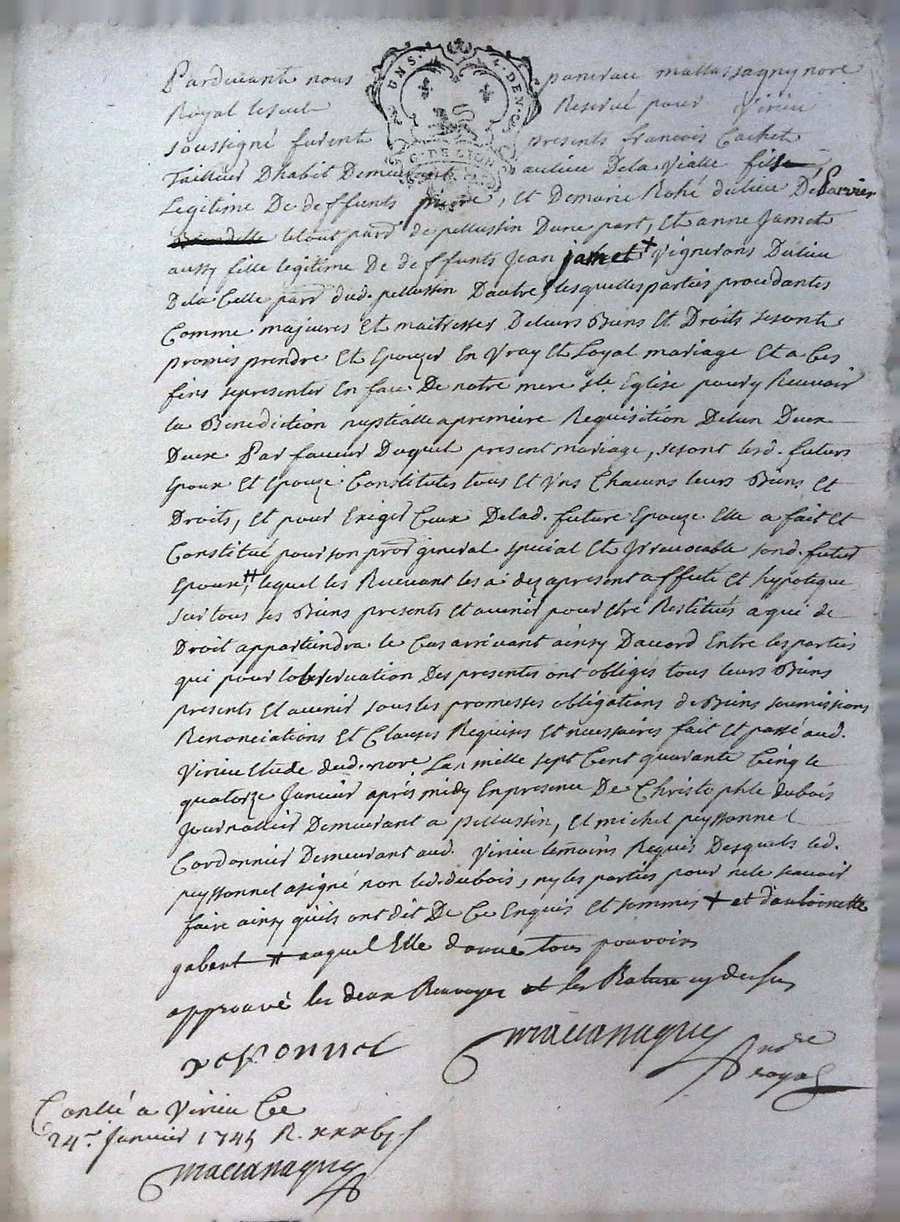 Pardevant nous pancrace mattassagny nore
Royal Reservé pour Virieu
soussigné furent presents francois Cachet
Taillieur Dhabit Demeurant aulieu Dela Vialle fils
Legitime De deffunts pierre, et Demarie Rohé dulieu De
letout parr. de pellussin Dune part, Et anne Jamet
aussy fille legitime De deffunts Jean jamet + Vignerons Dulieu
Dela Celle parr. dud. pellussin Dautre, lesquelles parties procedantes
Comme majeures Et maitresses Deleurs Biens Et Droits sesont
promis prendre Et Epouzer En Vray Et Loyal mariage Et a Ces
fins sepresenter En face De notre mere ste. Eglise pour y Recevoir
la Benediction nuptialle apremiere Requisition Delun Deux
Deux Par faveur Duquel present mariage, sesont lesd. futurs
Epoux Et Epouze Constitués tous Et Uns Chacuns leurs Biens Et
Droits, Et pour Exiger Ceux Delad. future Epouze Elle a fait Et
Constitué pour son procr. general special Et Irrevocable sond. futur
Epoux #, lequel les Recevant les a dez apresent affecté Et hypoteque
sur tous ses Biens presents Et avenir pour Etre Restitués a qui de
Droit appartiendra le Cas arrivant ainsy Dacord Entre les parties
qui pour lobservation Des presentes ont obligés tous leurs Biens
presents Et avenir sous les promesses obligations de Biens soumissions
Renonciations Et Clauses Requises Et necessaires fait Et passé aud.
Virieu Etude dud. nore. Lan mille sept Cent quarante Cinq le
quatorze Janvier aprés midy Enpresence De Christophle dubois
Journallier Demeurant a pellussin, Et michel peyssonnel
Cordonnier Demeurant aud. Virieu temoins Requis Desquels led.
peyssonnel asigné non led. dubois, ny les parties pour nele scavoir
faire ainsy quils ont dit De Ce Enquis Et sommés + et dantoinette
gabert # auquel Elle donne tous pouvoirs
approuvé les deux Renvoyes et les Rature cy dessus
peyssonnel
Contlé a Virieu Ce
24e. Janvier 1745 R.